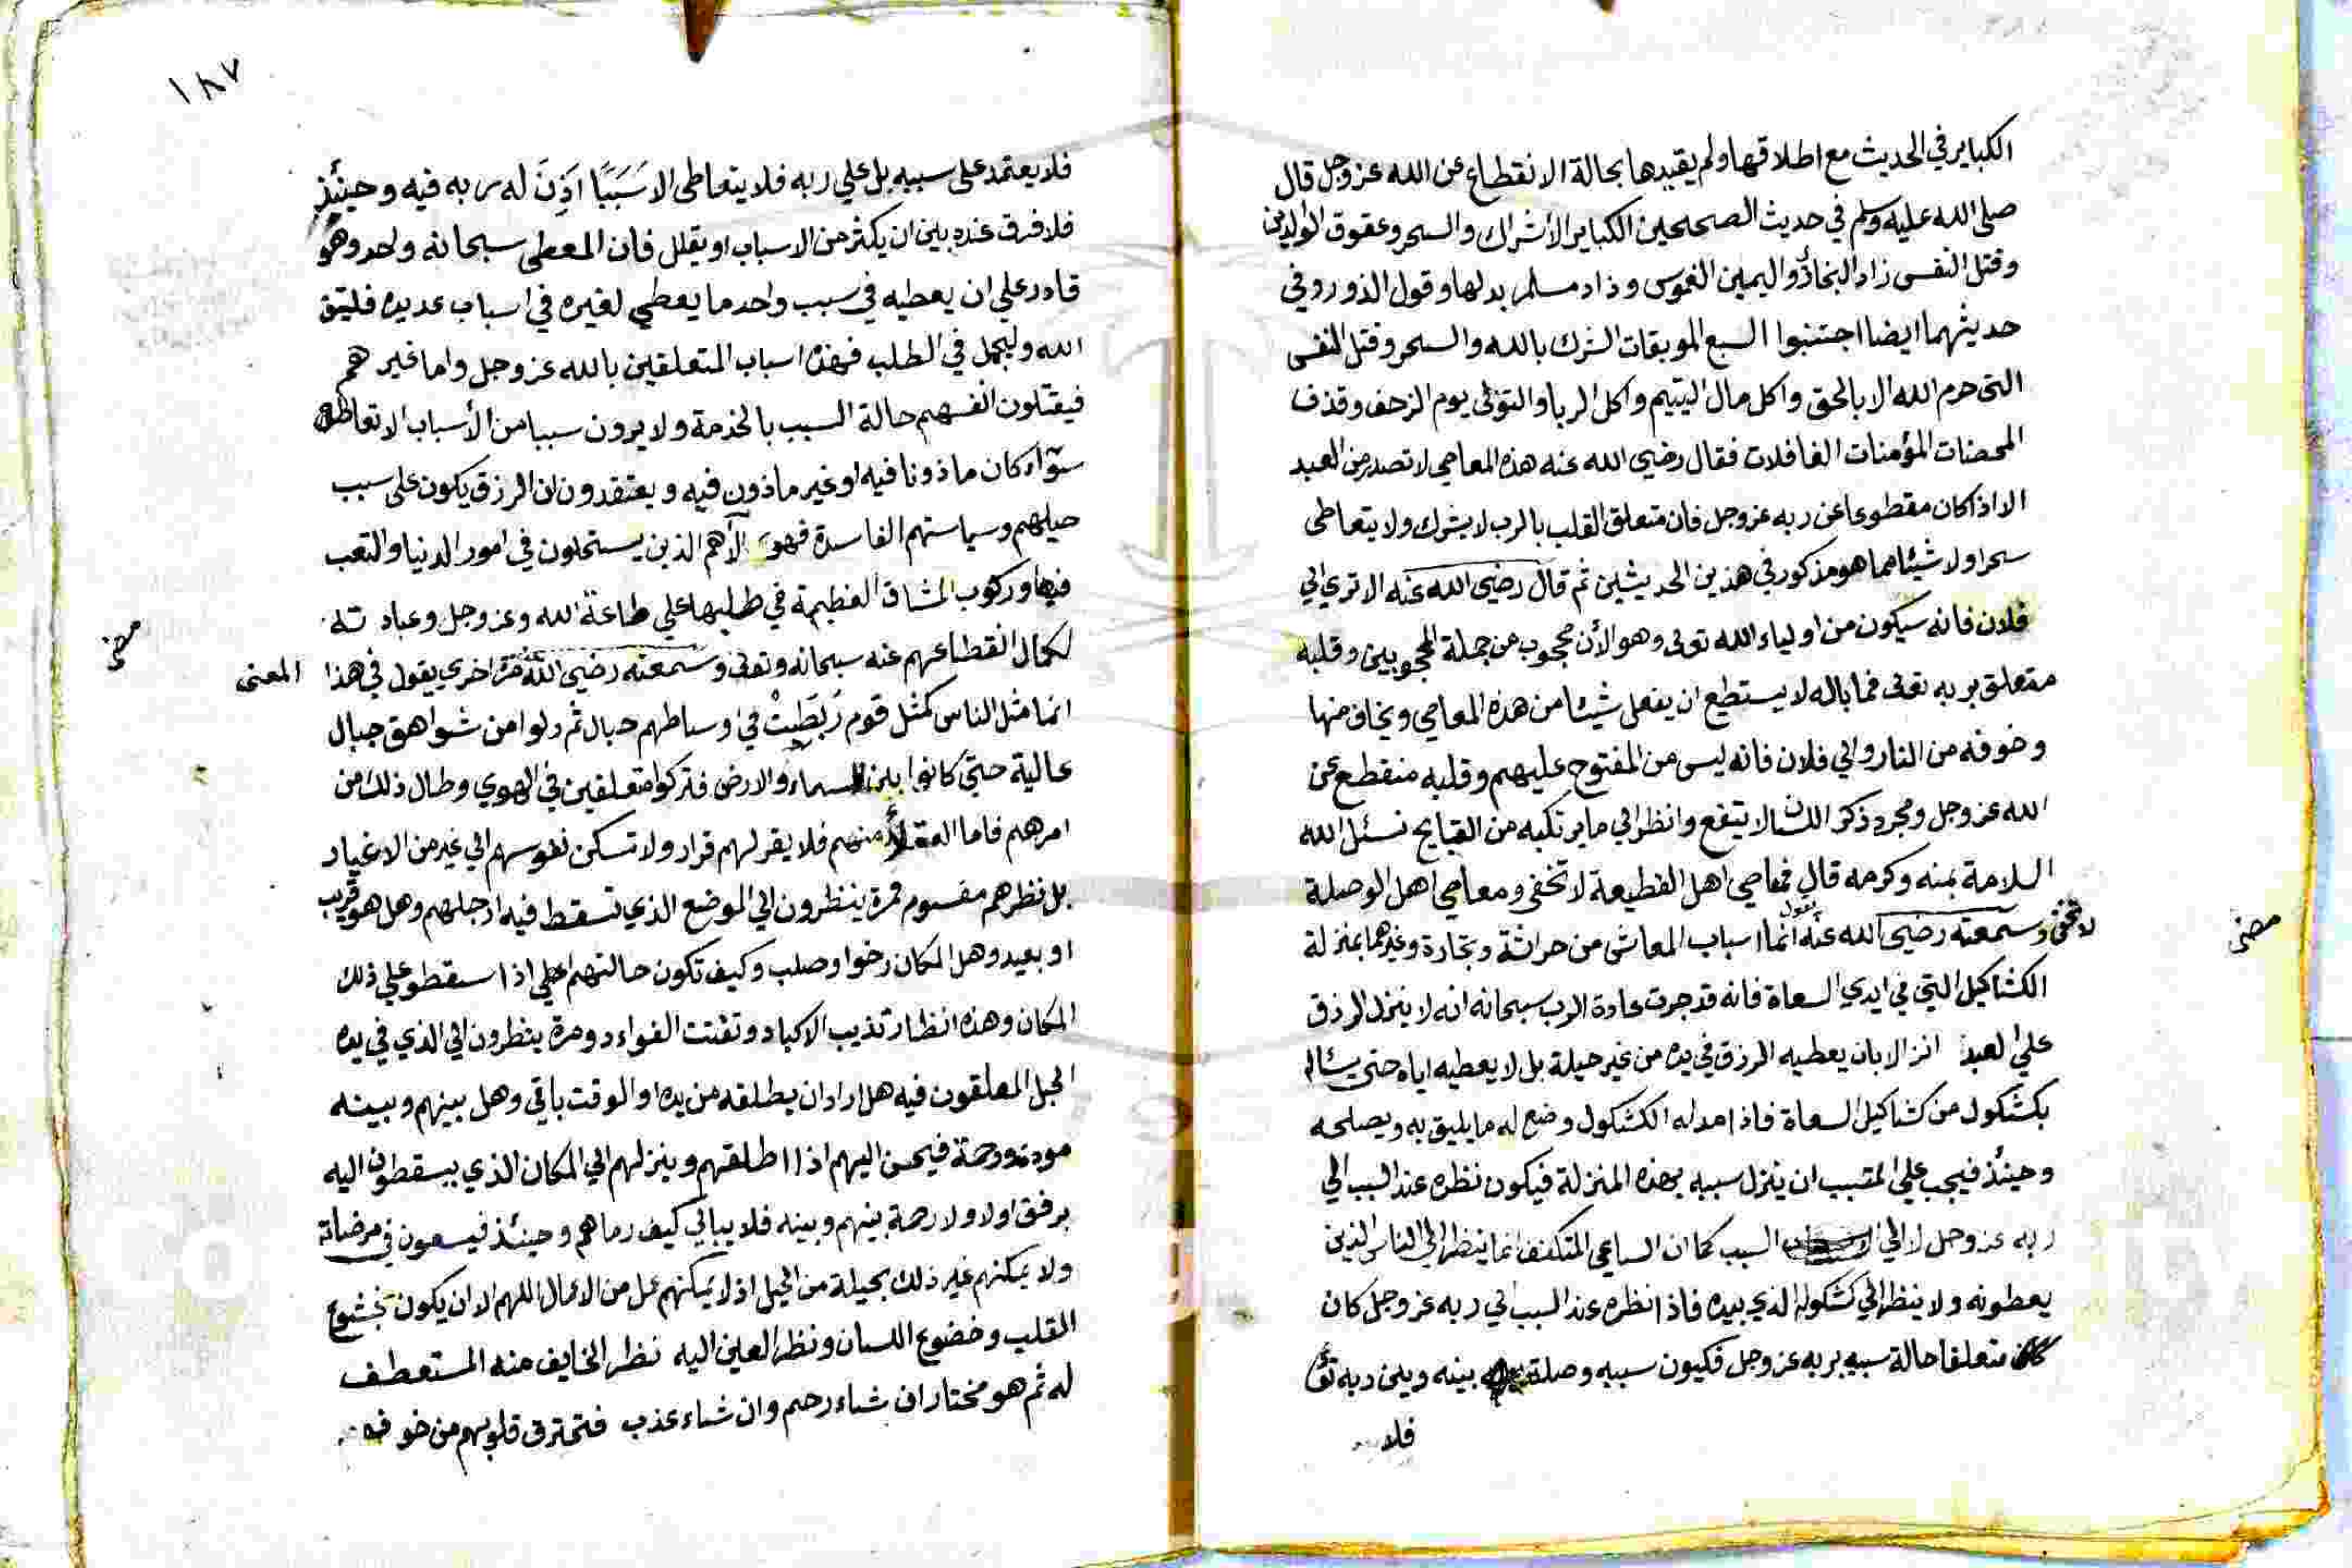 الكباير في الحديث مع اطلاقها ولم يقيدها بحالة الانقطاع عن الله عز وجل قال
صلى الله عليه وسلم في حديث الصحيحين الكباير الاشراك والسحر وعقوق الوالدين
وقتل النفس زاد البخاري واليمين الغموس وزاد مسلم بدلها وقول الزور وفي
حديثهما ايضا اجتنبوا السبع الموبقات الشرك بالله والسحر وقتل النفس
التي حرم الله الا بالحق واكل مال اليتيم واكل الربا والتولى يوم الزحف وقذف
المحصنات المؤمنات الغافلات فقال رضي الله عنه هذه المعاصي لا تصدر من العبد
الا اذا كان مقطوعا عن ربه عز وجل فان متعلق القلب بالرب لا يشرك ولا يتعاطى
سحرا ولا شيئا مما هو مذكور في هذين الحديثين ثم قال رضي الله عنه الا تري الي
فلان فانه سيكون من اولياء الله تعالى وهو الأن محجوب من جملة المحجوبين وقلبه
متعلق بربه تعالى فما باله لا يستطع ان يفعل شيئا من هذه المعاصي ويخاف منها
وخوفه من النار والي فلان فانه ليس من المفتوح عليهم وقلبه منقطع عن
الله عز وجل ومجرد ذكر اللسان لا ينفع وانظر الي ما يرتكبه من القبايح نسئل الله
السلامة بمنه وكرمه قال فمعاصي اهل القطيعة لا تخفى ومعاصي اهل الوصلة
لا تخفى وسمعته رضي الله عنه يقول انما اسباب المعاش من حراثة وتجارة وغيرهما بمنزلة
مضى
الكشاكيل التي في ايدي السعاة فانه قد جرت عادة الرب سبحانه انه لا ينزل الرزق
علي العبد الا بان يعطيه الرزق في يده من غير حيلة بل لا يعطيه اياه حتى يسئاله
بكشكول من كشاكيل السعاة فاذا مد له الكشكول وضع له ما يليق به ويصلحه
وحينئذ فيجب علي المتسبب ان ينزل سببه بهذه المنزلة فيكون نظره عند السبب الي
ربه عز وجل لا الي السبب كما ان الساعي المتكفف انما ينظر الي الناس الذين
يعطونه ولا ينظر الي كشكوله الذي بيده فاذا نظره عند السبب الي ربه عز وجل كان
متعلقا حالة سببه بربه عز وجل فكيون سببه وصلة بينه وبين ربه تعالى
فلا
١٨٧
فلا يعتمد على سببه بل علي ربه فلا يتعاطى الا سَبَبًا اذِنَ له ربه فيه وحينئذ
فلا فرق عنده بين ان يكثر من الاسباب او يقلل فان المعطي سبحانه واحد وهو
قادر علي ان يعطيه في سبب واحد ما يعطي لغيره في اسباب عديده فليتق
الله وليجمل في الطلب فهذا اسباب المتعلقين بالله عز وجل واما غيرهم
فيقتلون انفسهم حالة السبب بالخدمة ولا يرون سببا من الأسباب الا تعاطوه
سوّاء كان ماذونا فيه او غير ماذون فيه ويعتقدون ان الرزق يكون على سبب
حيلهم وسياستهم الفاسدة فهؤلآء هم الذين يستحلون في امور الدنيا والتعب
فيها وركوب المشاق العظيمة في طلبها علي طاعة الله وعز وجل وعبادته
لكمال انقطاعهم عنه سبحانه وتعالى وسمعته رضي الله عنه مرّة اخري يقول في هذا المعنى
مضى
انما مثل الناس كمثل قوم رُبَطِتْ في اوساطهم حبال ثم دلوا من شواهق جبال
عالية حتى كانوا بين السماء والارض فتركوا متعلقين في الهوي وطال ذلك من
امرهم فاما العقلأ منهم فلا يقر لهم قرار ولا تسكن نفوسهم الي غير من الاغيار
بل نظرهم مقسوم فمرة ينظرون الي الموضع الذي تسقط فيه ارجلهم وهل هو قريب
او بعيد وهل المكان رخوا وصلب وكيف تكون حالتهم اذا سقطوا علي ذلك
المكان وهذه انظار تذيب الاكباد وتفتت الفواءد ومرة ينظرون الي الذي في يده
الحبل المعلقون فيه هل اراد ان يطلقه من يده او الوقت باقي وهل بينهم وبينه
مودة ورحمة فيحسن اليهم اذا اطلقهم وينزلهم الي المكان الذي يسقطون اليه
برفق اولا ولا رحمة بينهم وبينه فلا يبالي كيف رماهم وحينئذ فيسعون في مرضاته
ولا يمكنهم غير ذلك بحيلة من الحيل اذ لا يمكنهم عمل من الاعمال اللهم الا ان يكون بخشوع
القلب وخضوع اللسان ونظر العين اليه نظر الخايف منه المستعطف
له ثم هو مختار ان شاء رحم وان شاء عذب فتحترق قلوبهم من خوفه